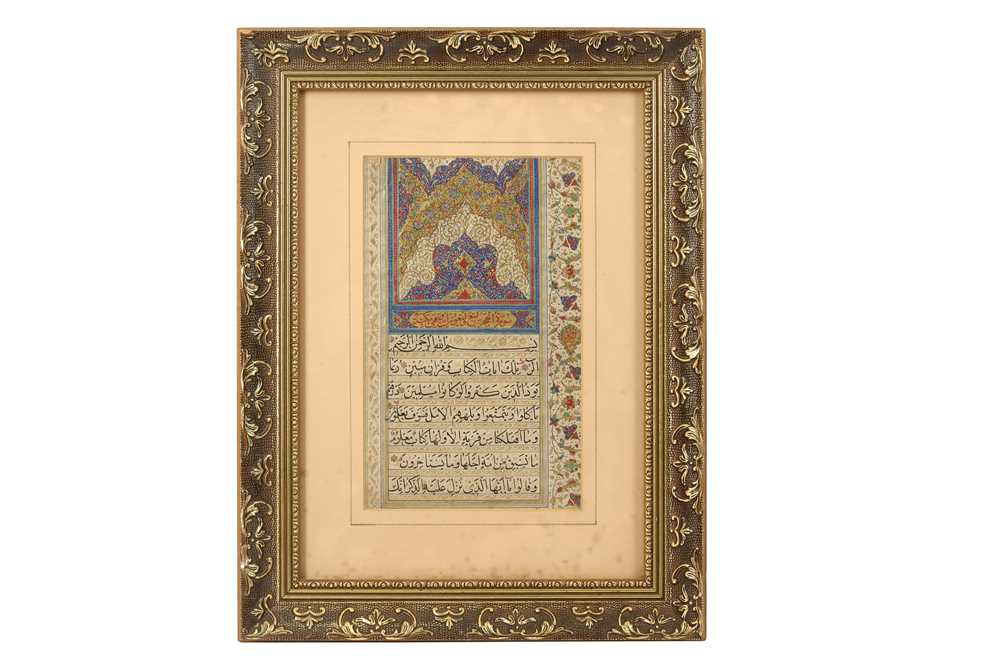 سورة الحجر
بسم الله الرحمن الرحيم
الر تلك ايات الكتاب و قران مبين ربما
يود الذين كفروا لو كانوا مسلمين ذرهم
ياكلوا و يتمتعوا و يلههم الامل فسوف يعلمون
و ما اهلكنا من قرية الا ولها كتاب معلوم
ما تسبق من امة اجلها وما يستاخرون
و قالوا يا ايها الذي نزل عليه الذكر انك